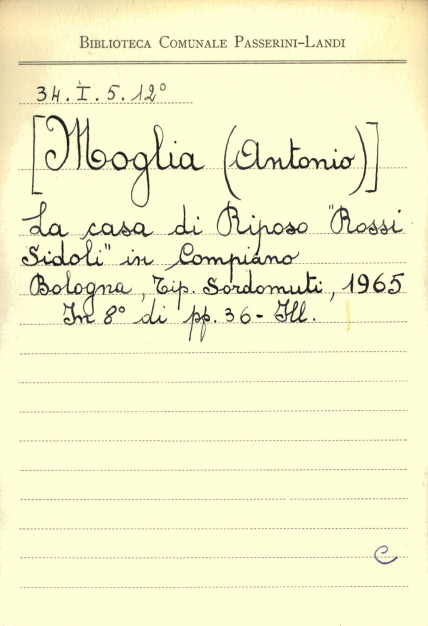 Biblioteca Comunale Passerini-Landi
34.I.5.12°
[Moglia (Antonio)]
La casa di Riposo "Rossi
Sidoli" in Compiano
Bologna, Tip. Sordomuti, 1965
In 8° di pp. 36 - Ill.
C